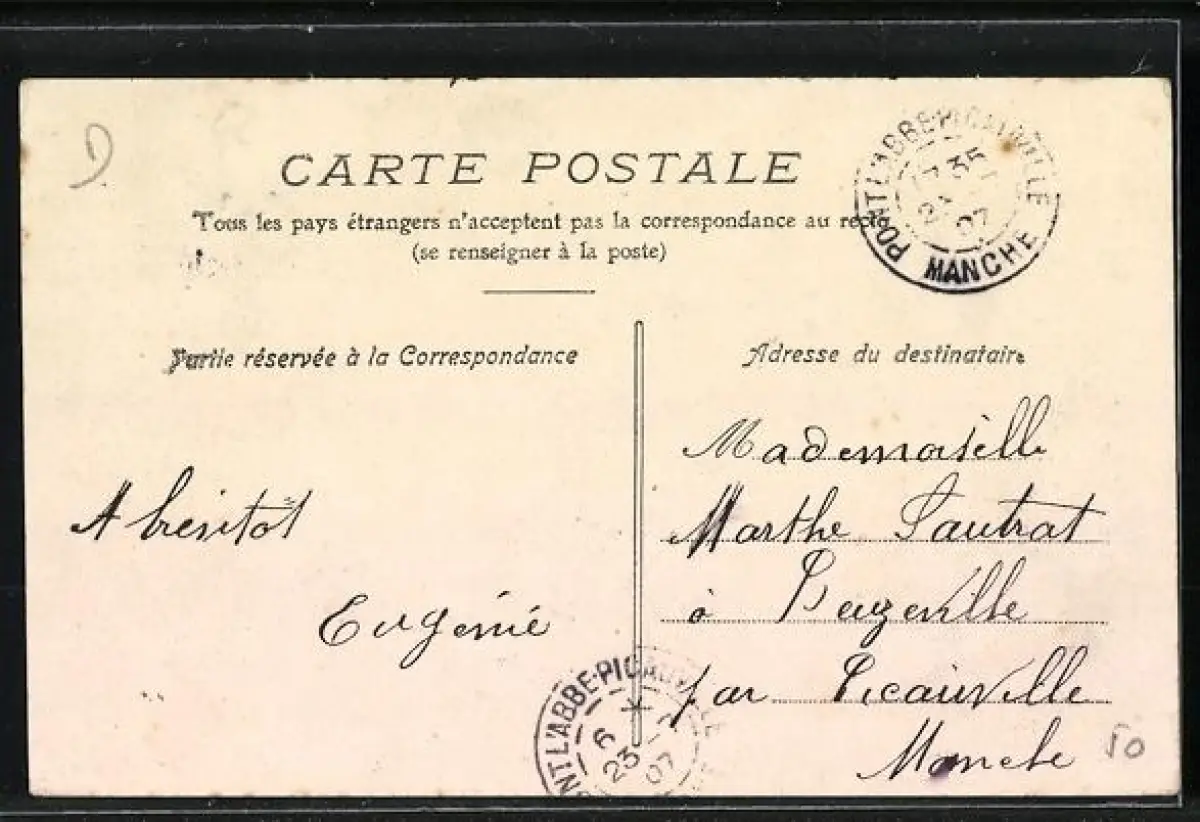 D
CARTE POSTALE
Tous les pays étrangers n'acceptent pas la correspondance au recto
(se renseigner à la poste)
PONT L'ABBÉ-PICAUVILLE
17 35
07
MANCHE
Partie réservée à la Correspondance
Adresse du destinataire
Mademoiselle
Marthe Lautrat
à Beuzeville
par Picauville
Manche
A bientôt
Eugénie
PONT L'ABBÉ-PICAUVILLE
6
23
07
50